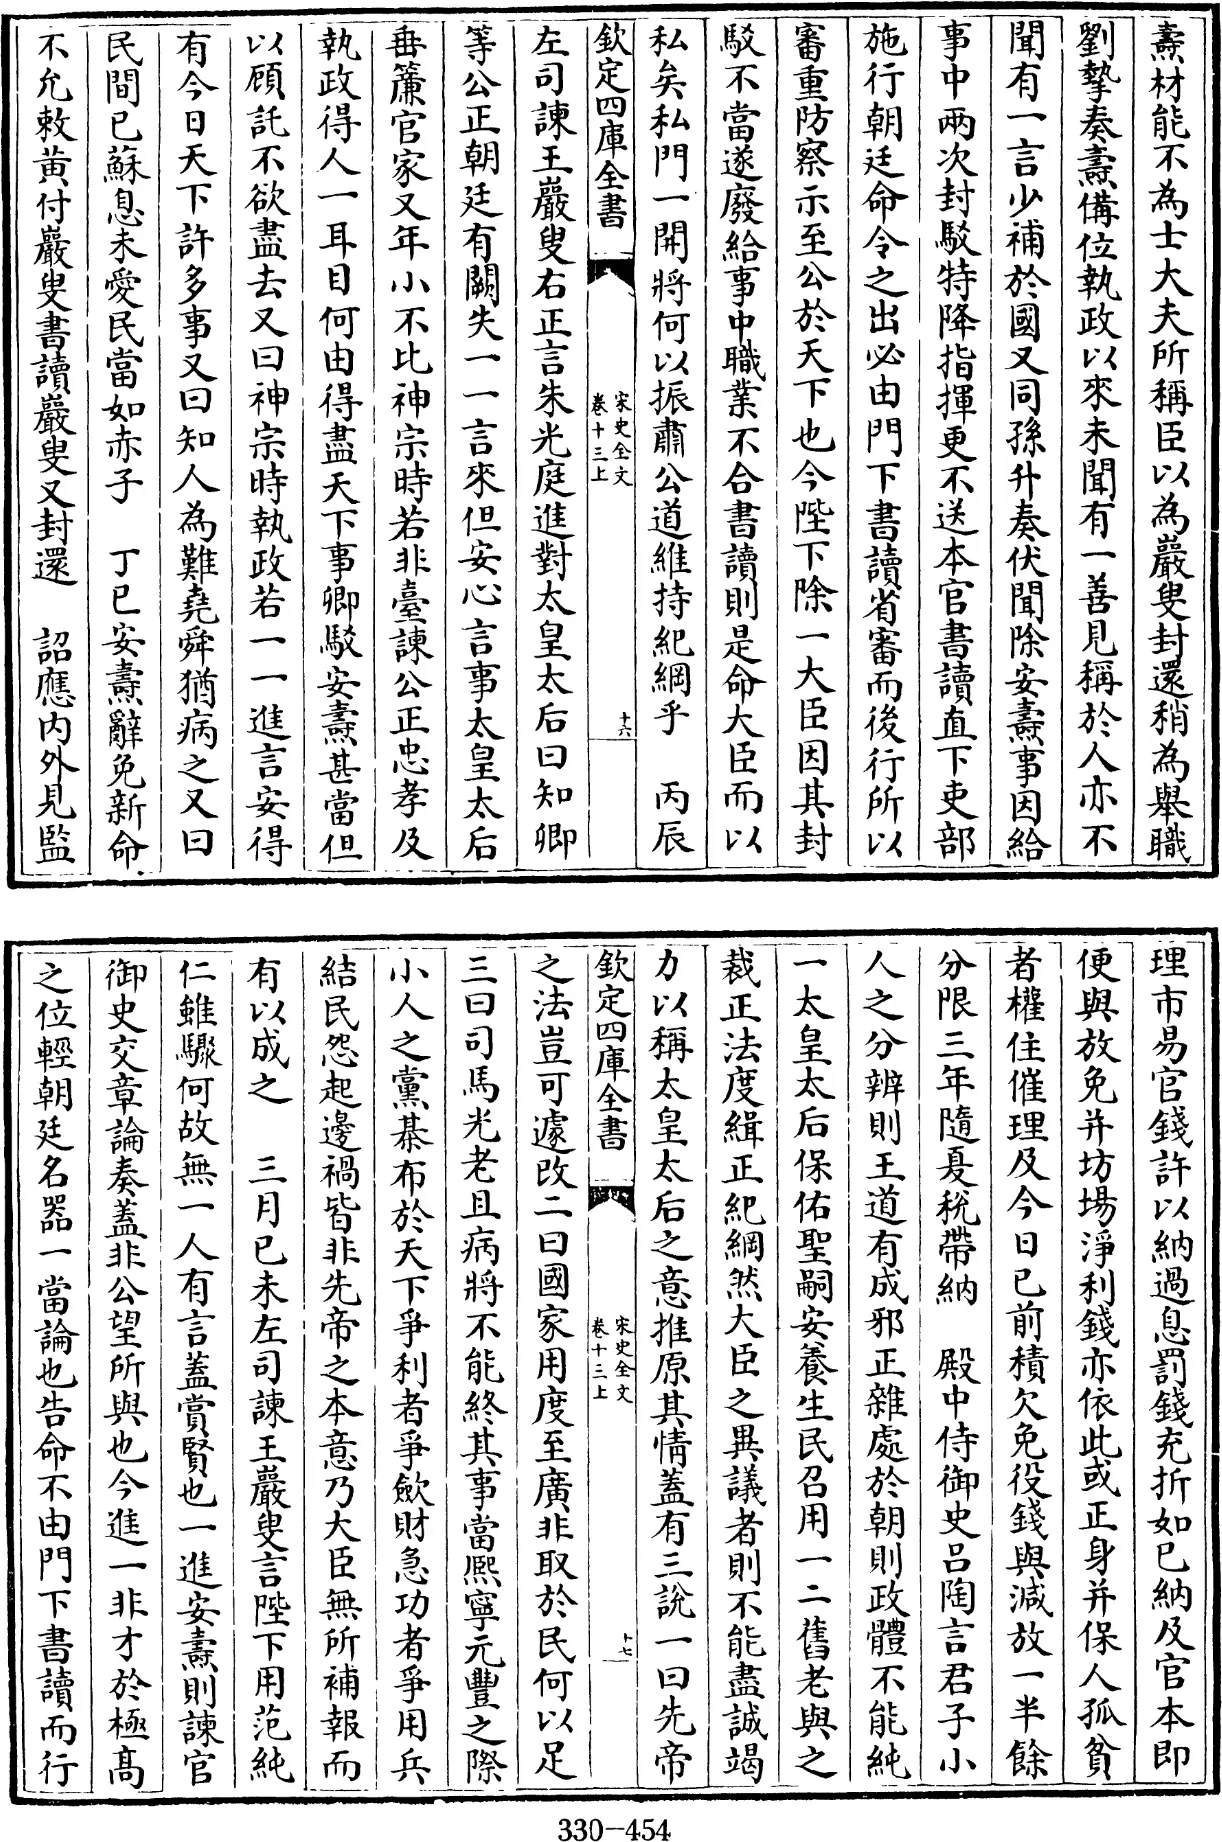 燾材能不為士大夫所稱臣以為嚴叟封還稍為舉職
劉摯奏燾備位執政以來未聞有一善見稱於人亦不
聞有一言少補於國又同孫升奏伏聞除安燾事因給
事中兩次封駁特降指揮更不送本官書讀直下吏部
施行朝廷命令之出必由門下書讀省審而後行所以
審重防察示至公於天下也今陛下除一大臣因其封
駁不當遂廢給事中職業不合書讀則是命大臣而以
私矣私門一開將何以振肅公道維持紀綱乎　丙辰
欽定四庫全書
宋史全文
卷十三上
十六
左司諫王嚴叟右正言朱光庭進對太皇太后曰知卿
等公正朝廷有闕失一一言來但安心言事太皇太后
垂簾官家又年小不比神宗時若非臺諫公正忠孝及
執政得人一耳目何由得盡天下事卿駁安燾甚當但
以顧託不欲盡去又曰神宗時執政若一一進言安得
有今日天下許多事又曰知人為難堯舜猶病之又曰
民間已蘇息未愛民當如赤子　丁巳安燾辭免新命
不允敕黃付嚴叟書讀嚴叟又封還　詔應内外見監
理市易官錢許以納過息罰錢充折如已納及官本即
便與放免并坊場淨利錢亦依此或正身并保人孤貧
者權住催理及今日已前積欠免役錢與減放一半餘
分限三年隨夏稅帶納　殿中侍御史呂陶言君子小
人之分辨則王道有成邪正雜處於朝則政體不能純
一太皇太后保佑聖嗣安養生民召用一二舊老與之
裁正法度緝正紀綱然大臣之異議者則不能盡誠竭
力以稱太皇太后之意推原其情蓋有三說一曰先帝
欽定四庫全書
宋史全文
卷十三上
十七
之法豈可遽改二曰國家用度至廣非取於民何以足
三曰司馬光老且病將不能終其事當熈寧元豐之際
小人之黨棊布於天下爭利者爭歛財急功者爭用兵
結民怨起邊禍皆非先帝之本意乃大臣無所補報而
有以成之　三月己未左司諫王嚴叟言陛下用范純
仁雖驟何故無一人有言蓋賞賢也一進安燾則諫官
御史交章論奏蓋非公望所與也今進一非才於極髙
之位輕朝廷名器一當論也告命不由門下書讀而行
330-454